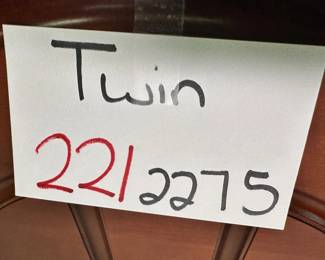 Twin
221 2275